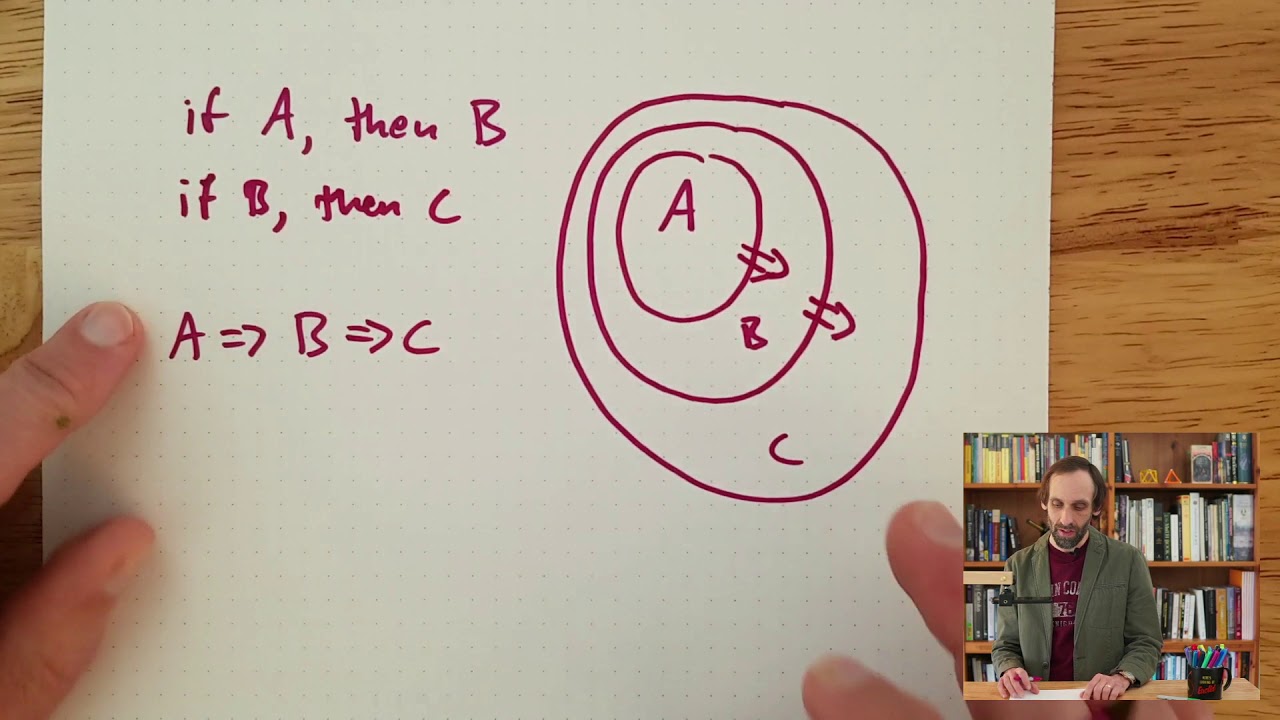 if A, then B
if B, then C
A => B => C
A
B
C